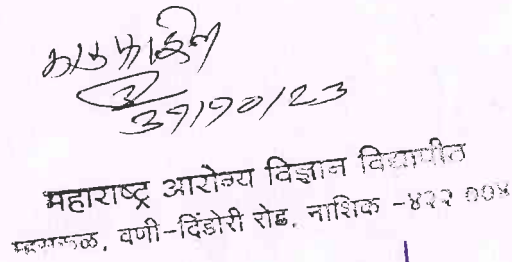 ३१/१०/२३
महाराष्ट्र आरोग्य विज्ञान विद्यापीठ
म्हसरूळ, वणी-दिंडोरी रोड, नाशिक -४२२ ००४